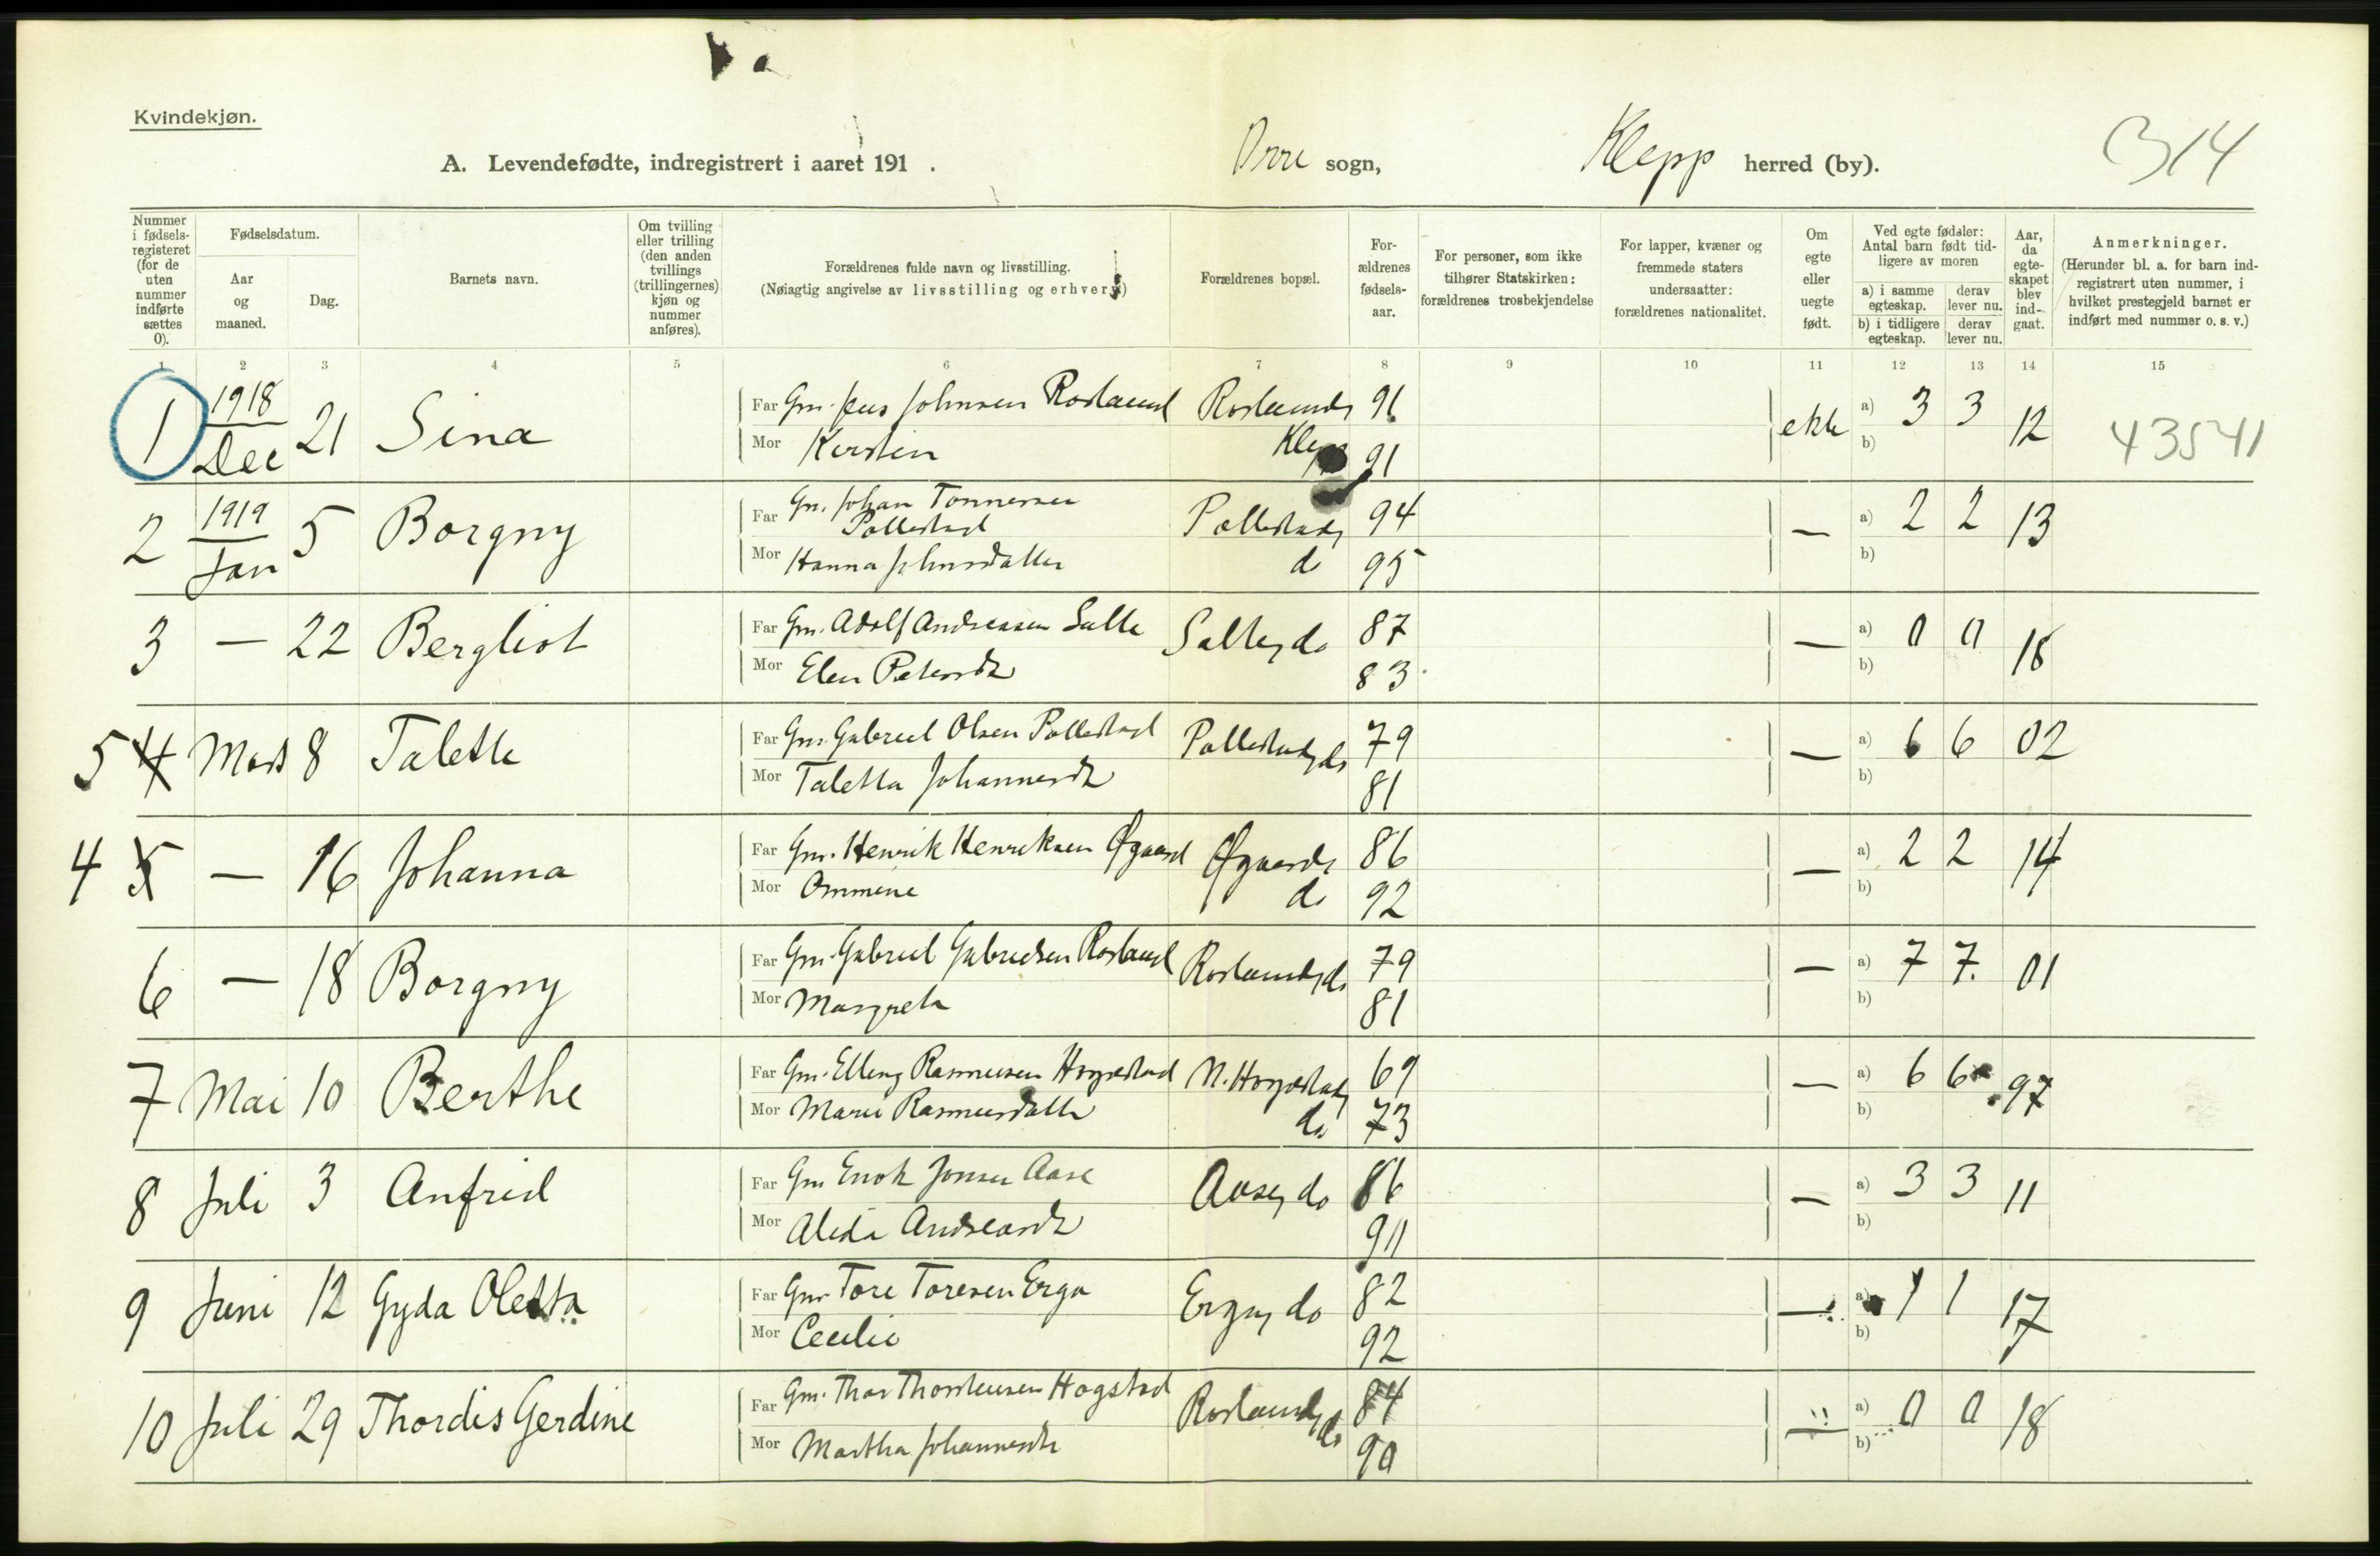 Kvindekjøn.
A. Levendefødte, indregistrert i aaret 191 . Orre sogn, Klepp herred (by). 314
Nummer i fødselsregisteret (for de uten nummer indførte sættes 0).
Fødselsdatum.
Aar og maaned.
Dag.
Barnets navn.
Om tvilling eller trilling (den anden tvillings (trillingernes) kjøn og nummer anføres).
Forældrenes fulde navn og livsstilling.
(Nøiagtig angivelse av livsstilling og erhverv.)
Forældrenes bopæl.
Forældrenes fødselsaar.
For personer, som ikke tilhører Statskirken: forældrenes trosbekjendelse
For lapper, kvæner og fremmede staters undersaatter: forældrenes nationalitet.
Om egte eller uegte født.
Ved egte fødsler: Antal barn født tidligere av moren
a) i samme egteskap. derav lever nu.
b) i tidligere egteskap. derav lever nu.
Aar, da egteskapet blev indgaat.
Anmerkninger.
(Herunder bl. a. for barn indregistrert uten nummer, i hvilket prestegjeld barnet er indført med nummer o. s. v.)
1 2 3 4 5 6 7 8 9 10 11 12 13 14 15
1 1918 Dec 21 Sina Far Gm. Jens Johnsen Rosland Roslands 91 ekte a) 3 3 12 43541
Mor Kirsten Klepp 91 b)
2 1919 Jan 5 Borgny Far Gm. Johan Tønnesen Pollestad Pollestad, 94 — a) 2 2 13
Mor Hanna Johnsdatter do 95 b)
3 — 22 Bergliot Far Gm. Adolf Andreasen Salte Salte, do 87 — a) 0 0 18
Mor Elen Petersdt 83 b)
5 4 Mars 8 Talette Far Gm. Gabriel Olsen Pollestad Pollestad, do 79 — a) 6 6 02
Mor Taletta Johannesdt 81 b)
4 5 — 16 Johanna Far Gm. Henrik Henriksen Øgaard Øgaards 86 — a) 2 2 14
Mor Ommine do 92 b)
6 — 18 Borgny Far Gm. Gabriel Gabrielsen Rosland Rosland, do 79 — a) 7 7 01
Mor Margrete 81 b)
7 Mai 10 Berthe Far Gm. Elling Rasmusen Hognestad N. Hognestad, 69 — a) 6 6 97
Mor Marie Rasmusdatter do 73 b)
8 Juli 3 Anfrid Far Gm Enok Jonsen Aase Aase, do 86 — a) 3 3 11
Mor Alida Andreasdt 90 b)
9 Juni 12 Gyda Oletta Far Gm Tore Toresen Erga Erga, do 82 — a) 1 1 17
Mor Cecilie 92 b)
10 Juli 29 Thordis Gerdine Far Gm. Thor Thorstensen Hogstad Rosland, do 84 — a) 0 0 18
Mor Martha Johannesdt 90 b)